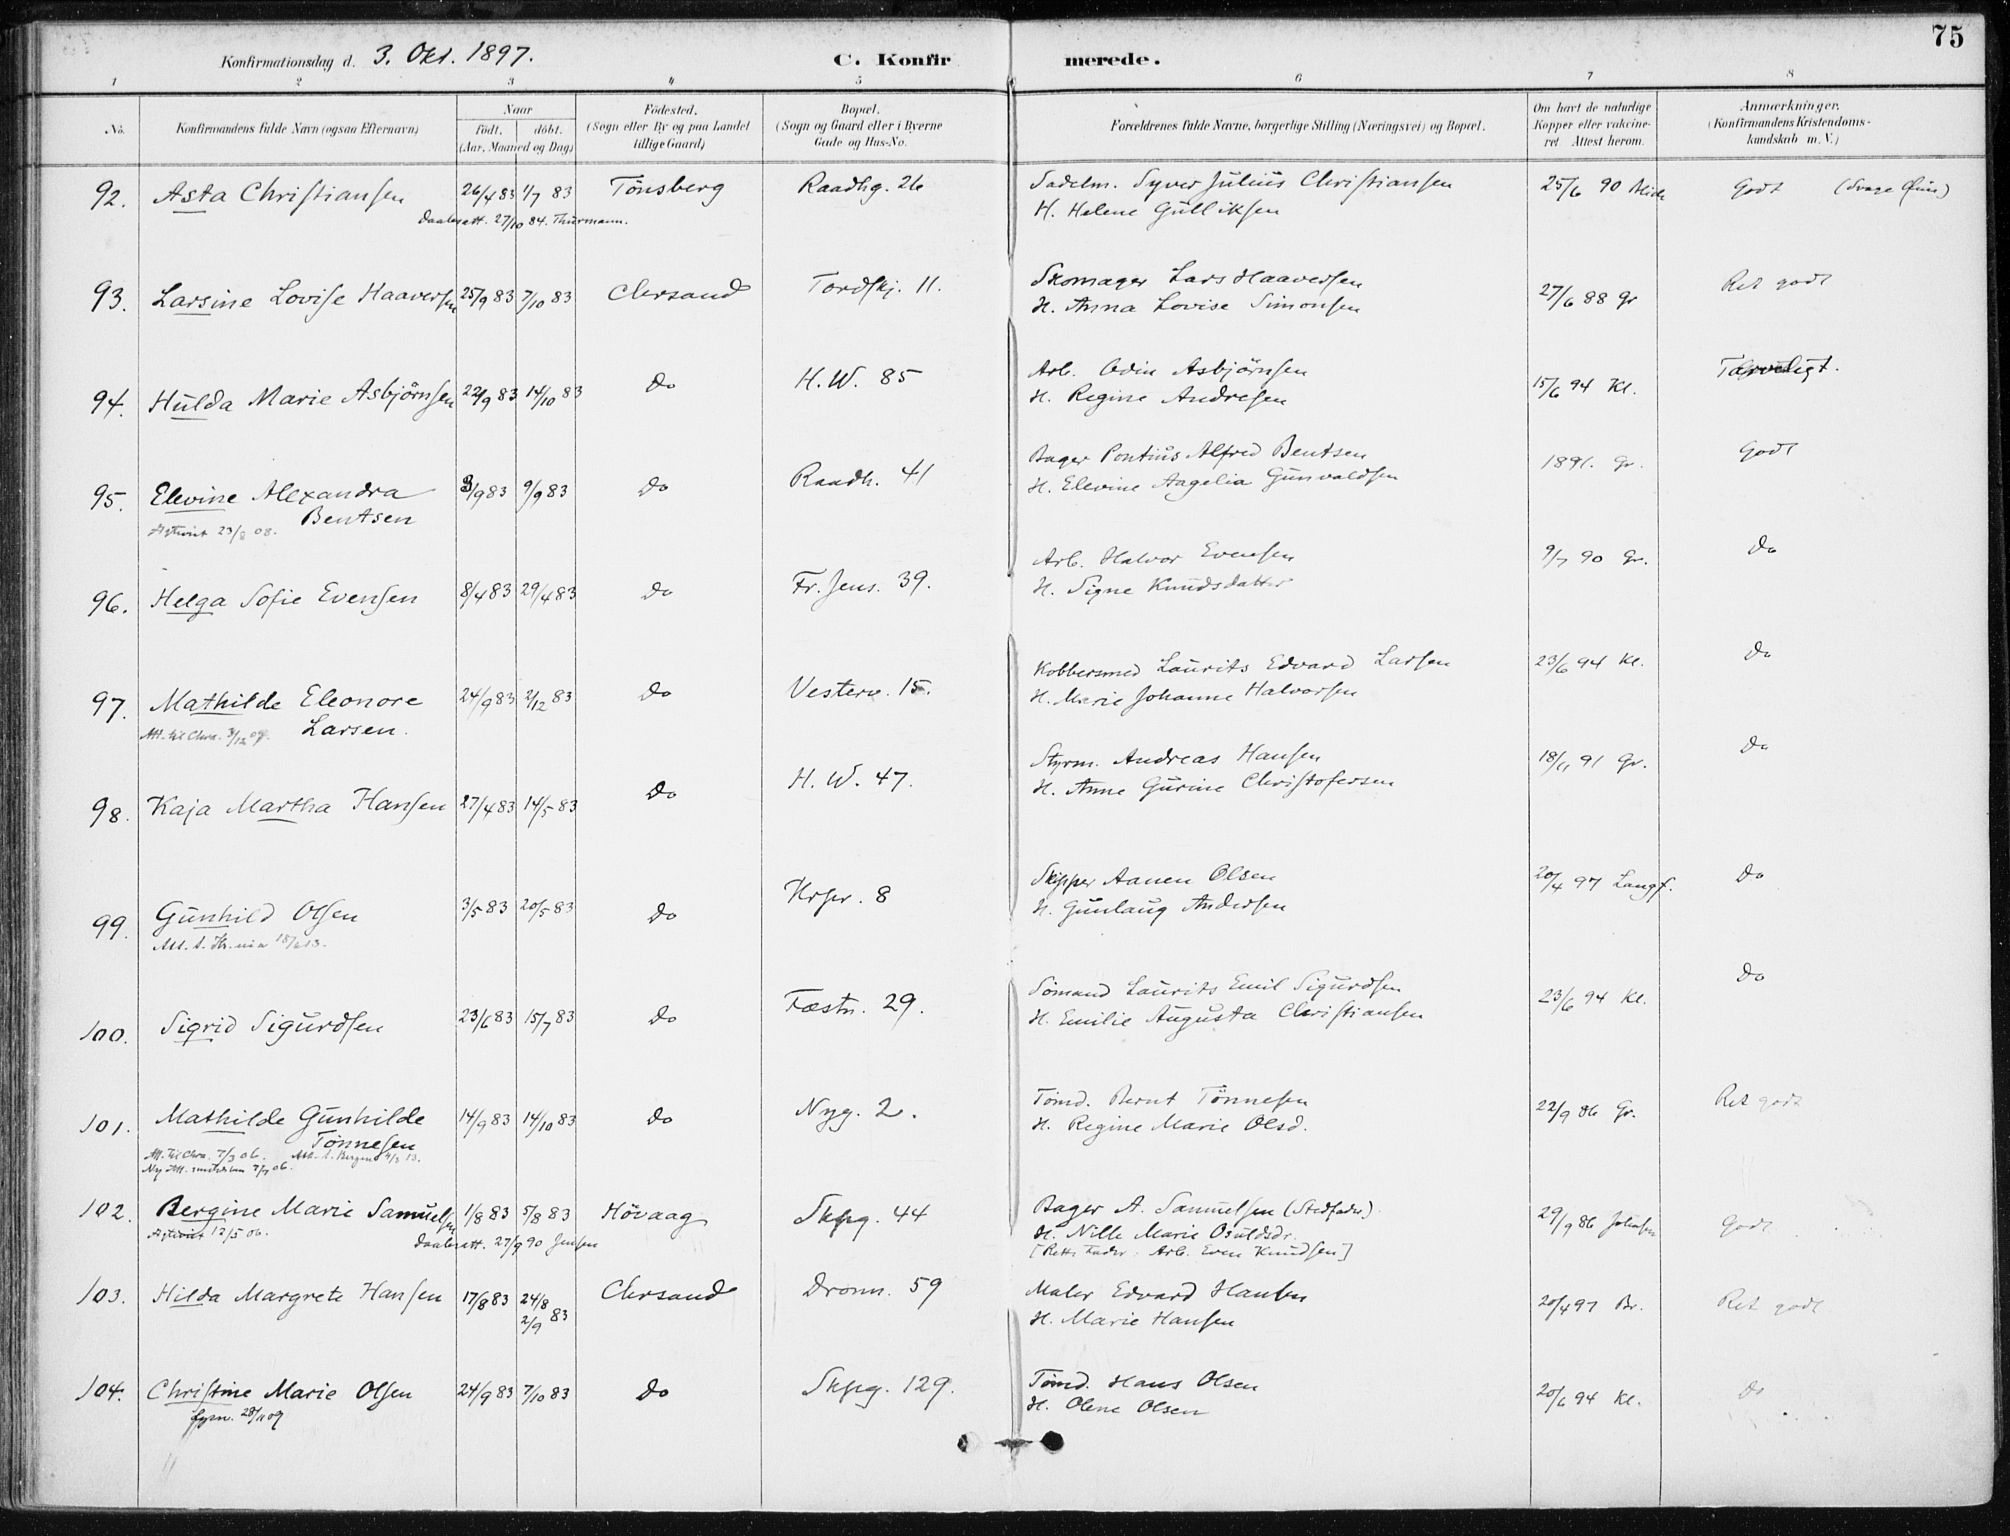 75
Konfirmationsdag d. 3. Okt. 1897. C. Konfirmerede.
1 2 3 4 5 6 7 8
No. Konfirmandens fulde Navn (ogsaa Efternavn) Naar født. døbt. (Aar, Maaned og Dag) Fødested. (Sogn eller By og paa Landet tillige Gaard) Bopæl. (Sogn og Gaard eller i Byerne Gade og Hus-No. Forældrenes fulde Navne, borgerlige Stilling (Næringsvei) og Bopæl. Om havt de naturlige Kopper eller vakcineret Attest herom. Anmærkninger. (Konfirmandens Kristendomskundskab m. V.)
92. Asta Christiansen 26/4 83 1/7 83 Tönsberg Raadhg. 26 Sadelm. Syver Julius Christiansen 25/6 90 Godt (Svage Öine)
Daabsatt. 27/10 84. Thurmann. H. Helene Gulliksen
93. Larsine Lovise Haaversen 25/9 83 7/10 83 Chrsand Tordskj. 11. Skomager Lars Haaversen 27/6 88 Gr Ret godt
H. Anna Lovise Simonsen
94. Hulda Marie Asbjörnsen 22/9 83 14/10 83 Do H. W. 85 Arb. Odin Asbjörnsen 15/6 94 Kl. Tarveligt.
H. Regine Andresen
95. Elevine Alexandra 3/9 83 9/9 83 Do Raadh. 41 Bager Pontius Alfred Bentsen 1891. Gr. Godt
Bentsen H. Elevine Aagelia Gunvaldsen
23/8 08.
96. Helga Sofie Evensen 8/4 83 29/4 83 Do Fr. Jens. 39. Arb. Halvor Evensen 9/7 90 Gr. Do
H. Signe Knudsdatter
97. Mathilde Eleonore 24/9 83 2/12 83 Do Vesterv. 15. Kobbersmed Laurits Edvard Larsen 23/6 94 Kl. Do
Att. til Chra. 3/12 Larsen. H. Marie Johanne Halvorsen
98. Kaja Martha Hansen 27/4 83 14/5 83 Do H. W. 47. Styrm. Andreas Hansen 18/11 91 Gr. Do
H. Anne Gurine Christofersen
99. Gunhild Olsen 3/5 83 20/5 83 Do Krpr. 8 Skipper Aanen Olsen 20/4 97 Langf. Do
Att. t. Kr.nia H. Gunlaug Andersen
100. Sigrid Sigurdsen 23/6 83 15/7 83 Do Fæstn. 29. Sömand Laurits Emil Sigurdsen 23/6 94 Kl. Do
H. Emilie Augusta Christiansen
101. Mathilde Gunhilde 14/9 83 14/10 83 Do Nyg. 2. Tömd. Bernt Tönnesen 22/9 86 Gr. Ret godt
Tönnesen H. Regine Marie Olsd.
Att. til Chra. 7/3 06. Att. t. Bergen 4/3 13.
Ny Att. 7/7 06.
102. Bergine Marie Samuelsen 1/8 83 5/8 83 Hövaag Skpg. 44 Bager A. Samuelsen (Stedfader) 29/9 86 Johnsen Godt
12/5 06. Daabsatt. 27/9 90 Jensen H. Nille Marie Osuldsdr.
[Rette Fader: Arb. Even Knudsen]
103. Hilda Margrete Hansen 17/8 83 24/8 2/9 83 Chrsand Dronn. 59 Maler Edvard Hansen 20/4 97 Br. Ret godt
H. Marie Hansen
104. Christine Marie Olsen 24/9 83 7/10 83 Do Skpg. 129. Tömd. Hans Olsen 20/6 94 Kl. Do
28/11 09 H. Olene Olsen